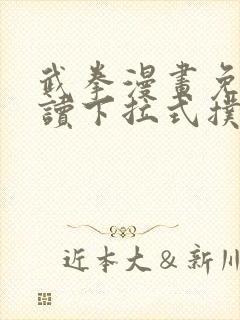 武拳漫畫免
讀下拉式撲
近本大&新川